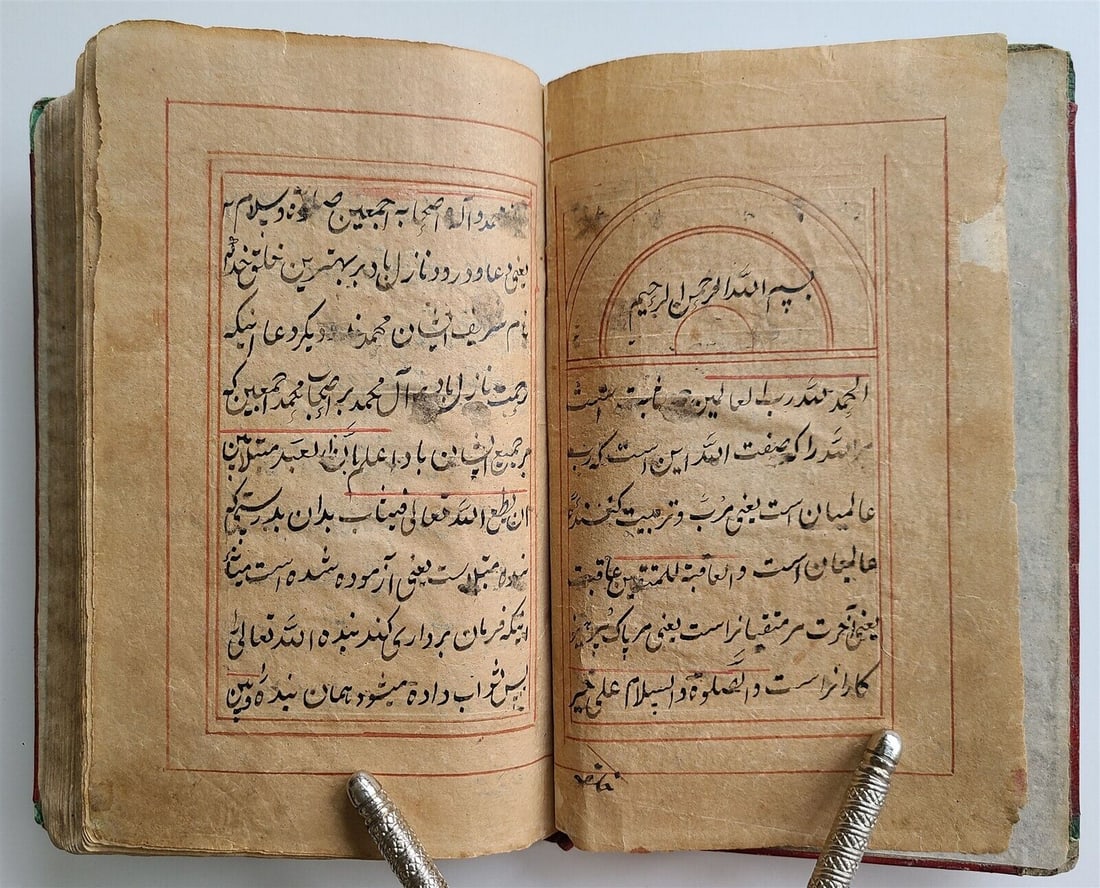 بسم الله الرحمن الرحیم
الحمد لله رب العالمین
الله را که صفت الله این است که رب
عالمیان است یعنی مرب و تربیت کننده
عالمیان است والعاقبة للمتقین عاقبت
یعنی آخرت مر متقیانرا است یعنی مر پاک
کارانرا است والصلوة والسلام علی خیر
محمد وآله اصحابه اجمعین صلوة وسلام
یعنی دعا و درود نازل باد بر بهترین خلق خدای
نام شریف ایشان محمد دیگر دعا اینکه
رحمت نازل باد بر آل محمد بر اصحاب محمد اجمعین که
بر جمیع ایشان باد اعلم بان العبد مبتلا بین
ان یطع الله تعالی فیثاب بدان بدرستیکه
بنده مبتلا است یعنی آزموده شده است میانه
اینکه فرمان برداری کند بنده الله تعالی را
پس ثواب داده میشود همان بنده وبین